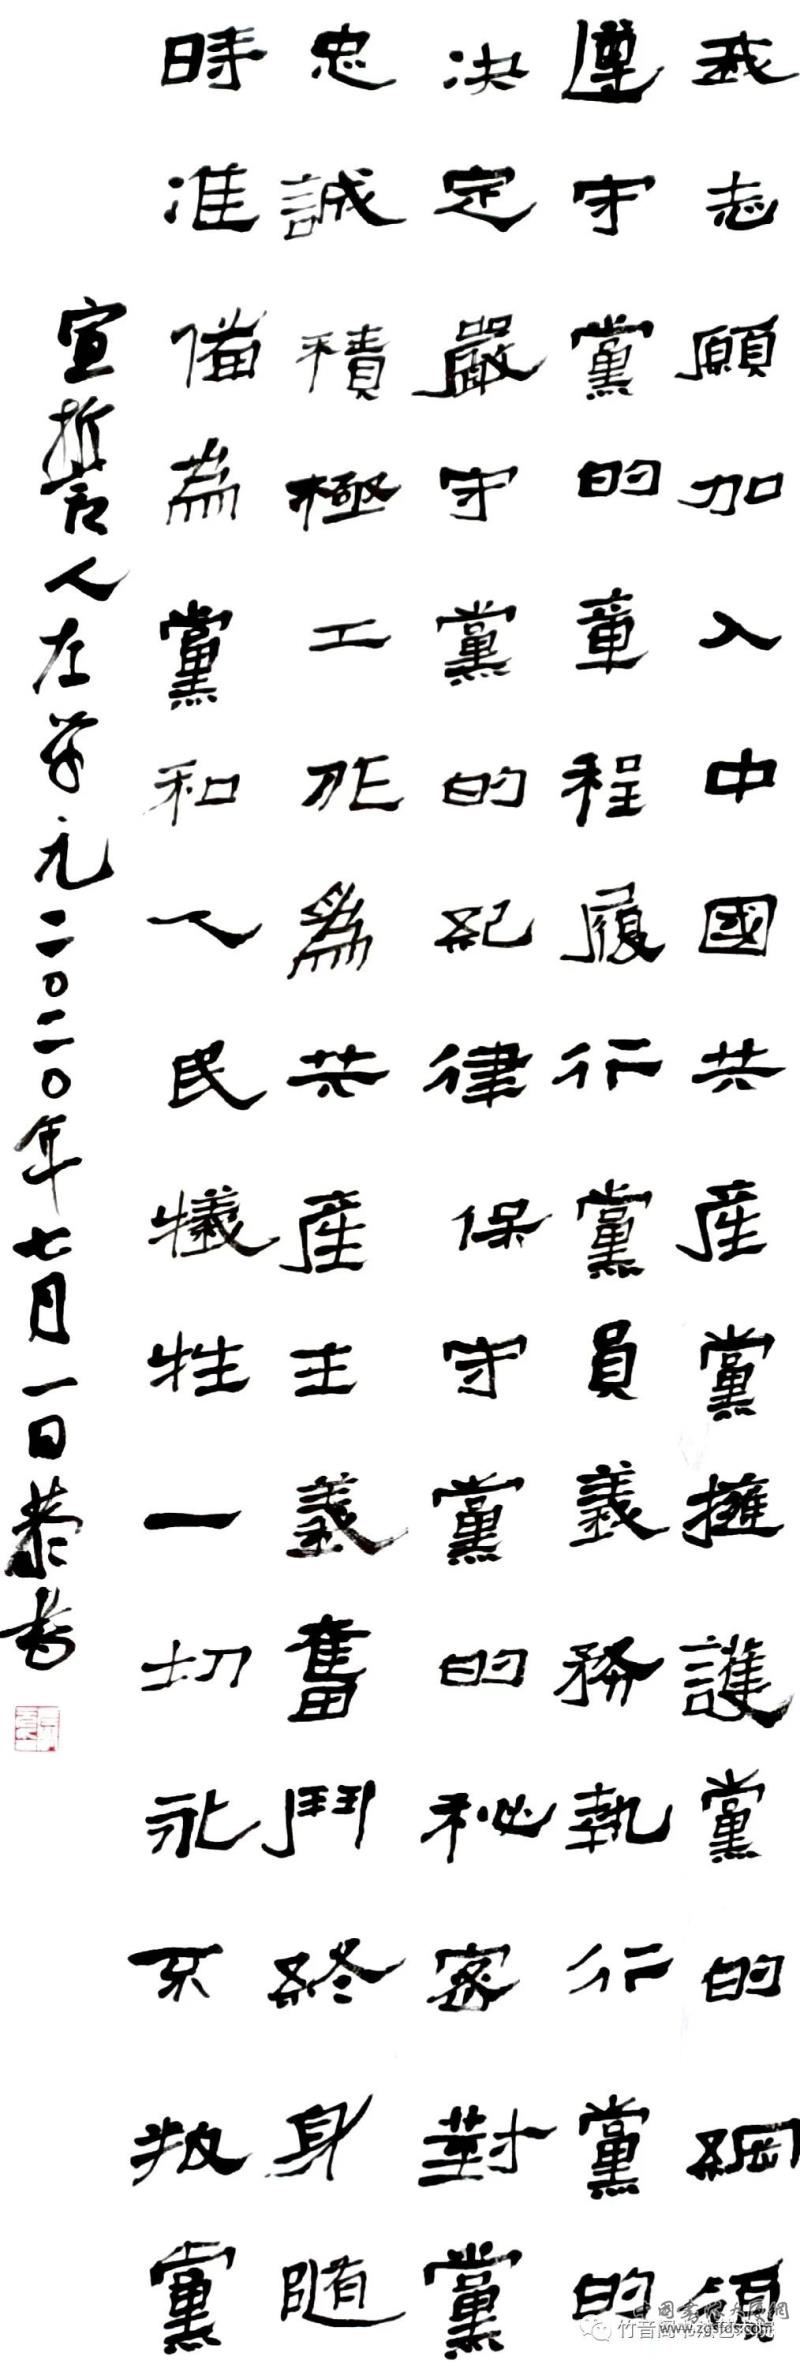 我志願加入中國共産黨擁護黨的綱領
遵守黨的章程履行黨員義務執行黨的
决定嚴守黨的紀律保守黨的秘密對黨
忠誠積極工作為共産主義奮鬥終身隨
時准備為黨和人民犧牲一切永不叛黨
宣誓人左学元二〇二〇年七月一日恭書
www.zgsfds.com